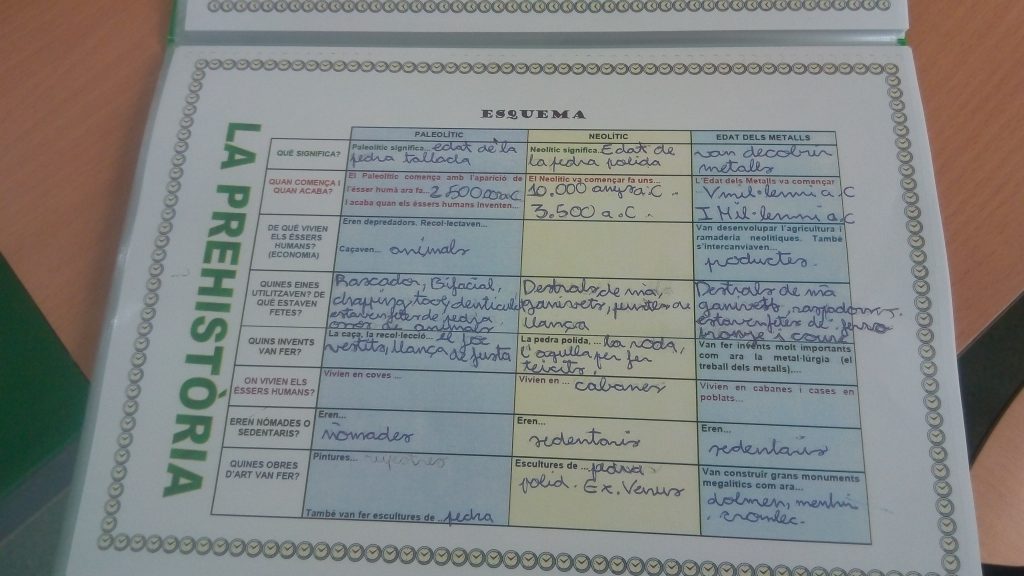 ESQUEMA
LA PREHISTÒRIA
PALEOLÍTIC
NEOLÍTIC
EDAT DELS METALLS
QUÈ SIGNIFICA?
Paleolític significa... edat de la
pedra tallada
Neolític significa. Edat de
la pedra polida
van decobrir
metalls
QUAN COMENÇA I
QUAN ACABA?
El Paleolític comença amb l'aparició de
l'ésser humà ara fa...
i acaba quan els éssers humans inventen...
El Neolític va començar fa uns...
10.000 anys a.C
3.500 a.C.
L'Edat dels Metalls va començar
V mil·lenni a.C
I Mil·lenni a.C
DE QUÈ VIVIEN
ELS ÉSSERS
HUMANS?
(ECONOMIA)
Eren depredadors. Recol·lectaven...
Caçaven... animals
Van desenvolupar l'agricultura i
ramaderia neolítiques. També
s'intercanviaven...
productes.
QUINES EINES
UTILITZAVEN? DE
QUÈ ESTAVEN
FETES?
Rascador, Bifacial,
estaven fetes de pedra
ossos de animals
Destrals de mà,
ganivets, puntes de
llança
Destrals de mà
ganivets, raspadors.
estaven fetes de ferro
bronze i coure
QUINS INVENTS
VAN FER?
La caça, la recol·lecció... el foc
vestits, llança de fusta
La pedra polida, ... la roda,
l'agulla per fer
teixits,
Van fer invents molt importants
com ara la metal·lúrgia (el
treball dels metalls)....
ON VIVIEN ELS
ÉSSERS HUMANS?
Vivien en coves ...
Vivien en ... cabanes
Vivien en cabanes i cases en
poblats...
EREN NÒMADES O
SEDENTARIS?
Eren...
nòmades
Eren...
sedentaris
Eren...
sedentaris
QUINES OBRES
D'ART VAN FER?
Pintures... rupestres
També van fer escultures de ..pedra
Escultures de ...pedra
polid. Ex. Venus
Van construir grans monuments
megalítics com ara...
dolmen, menhir
, cromlec.